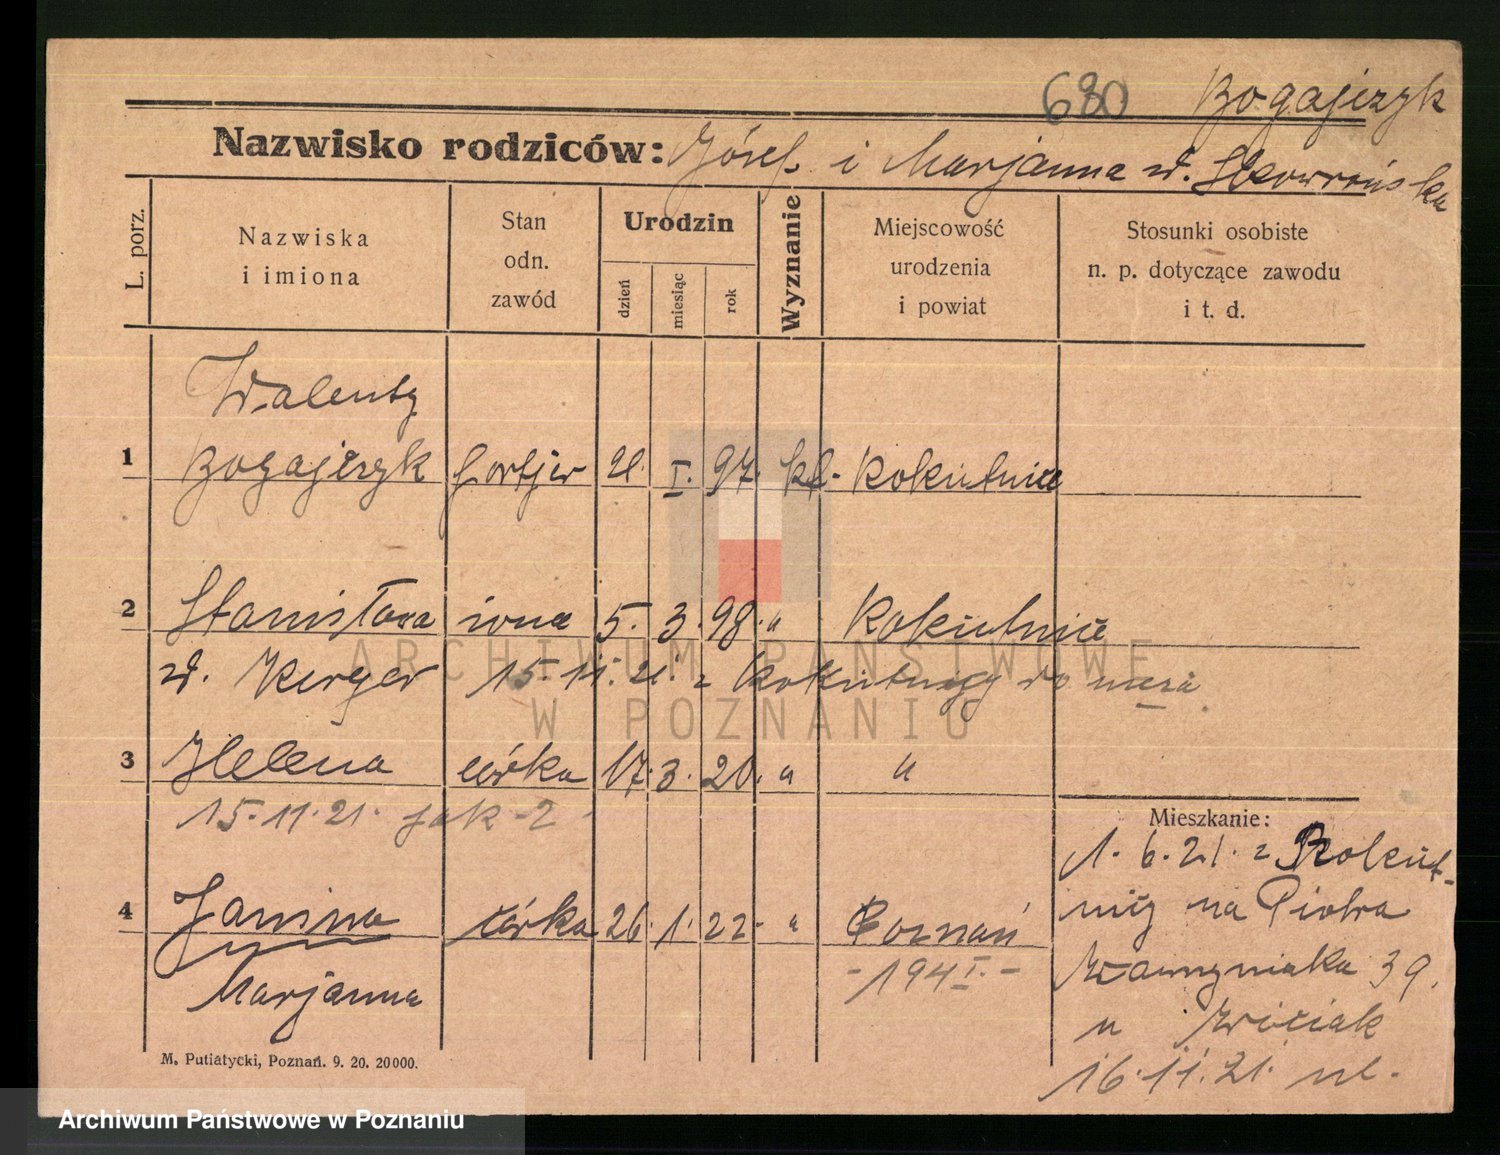 680 Bogajczyk
Nazwisko rodziców: Józef i Marjanna z d. Skowrońska
L. porz.
Nazwiska
i imiona
Stan
odn.
zawód
Urodzin
dzień
miesiąc
rok
Wyznanie
Miejscowość
urodzenia
i powiat
Stosunki osobiste
n. p. dotyczące zawodu
i t. d.
Walenty
1 Bogajczyk portjer 21. I. 97. kt. Rokutnice
2 Stanisława żona 5. 3. 98. " Rokutnice
z d. Kerger 15.11.21. z Rokutnicy do męża
3 Helena córka 17. 3. 20. " "
15.11.21. jak 2
4 Janina córka 26. 1. 22. " Poznań
Marjanna - 194 I. -
Mieszkanie:
1. 6. 21. z Rokut-
nicy na Piotra
Wawrzyniaka 39.
u
16.11.21.
M. Putiatycki, Poznań. 9. 20. 20000.
ARCHIWUM PAŃSTWOWE
W POZNANIU
Archiwum Państwowe w Poznaniu